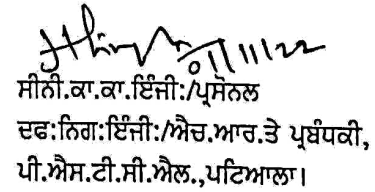 01/11/22
ਸੀਨੀ.ਕਾ.ਕਾ.ਇੰਜੀ:/ਪ੍ਰਸੋਨਲ
ਦਫ:ਨਿਗ:ਇੰਜੀ:/ਐਚ.ਆਰ.ਤੇ ਪ੍ਰਬੰਧਕੀ,
ਪੀ.ਐਸ.ਟੀ.ਸੀ.ਐਲ.,ਪਟਿਆਲਾ।